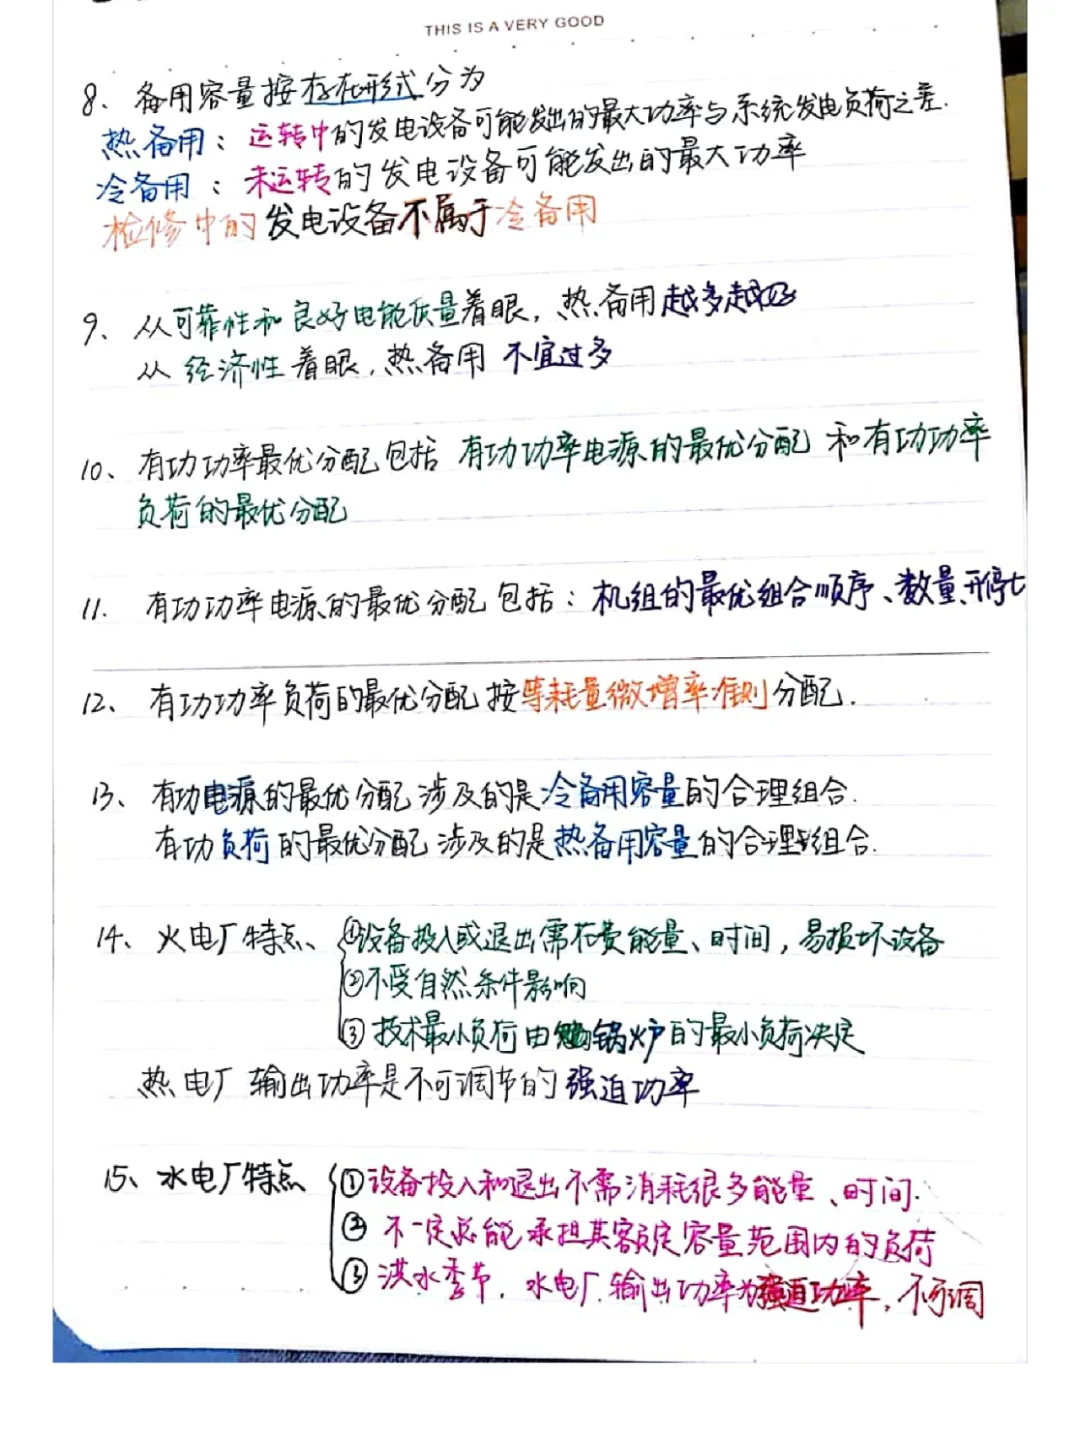 THIS IS A VERY GOOD
8、备用容量按存在形式分为
热备用：运转中的发电设备可能发出的最大功率与系统发电负荷之差.
冷备用：未运转的发电设备可能发出的最大功率
检修中的发电设备不属于冷备用
9、从可靠性和良好电能质量着眼，热备用越多越好
从经济性着眼，热备用不宜过多
10、有功功率最优分配包括 有功功率电源的最优分配 和有功功率
负荷的最优分配
11. 有功功率电源的最优分配包括：机组的最优组合顺序、数量、开停
12、有功功率负荷的最优分配按等耗量微增率准则分配.
13、有功电源的最优分配涉及的是冷备用容量的合理组合.
有功负荷的最优分配涉及的是热备用容量的合理组合.
14、火电厂特点、①设备投入或退出需花费能量、时间，易损坏设备
②不受自然条件影响
③技术最小负荷由锅炉的最小负荷决定
热电厂输出功率是不可调节的强迫功率
15、水电厂特点 ①设备投入和退出不需消耗很多能量、时间.
② 不一定总能承担其额定容量范围内的负荷
③ 洪水季节，水电厂输出功率为强迫功率，不可调